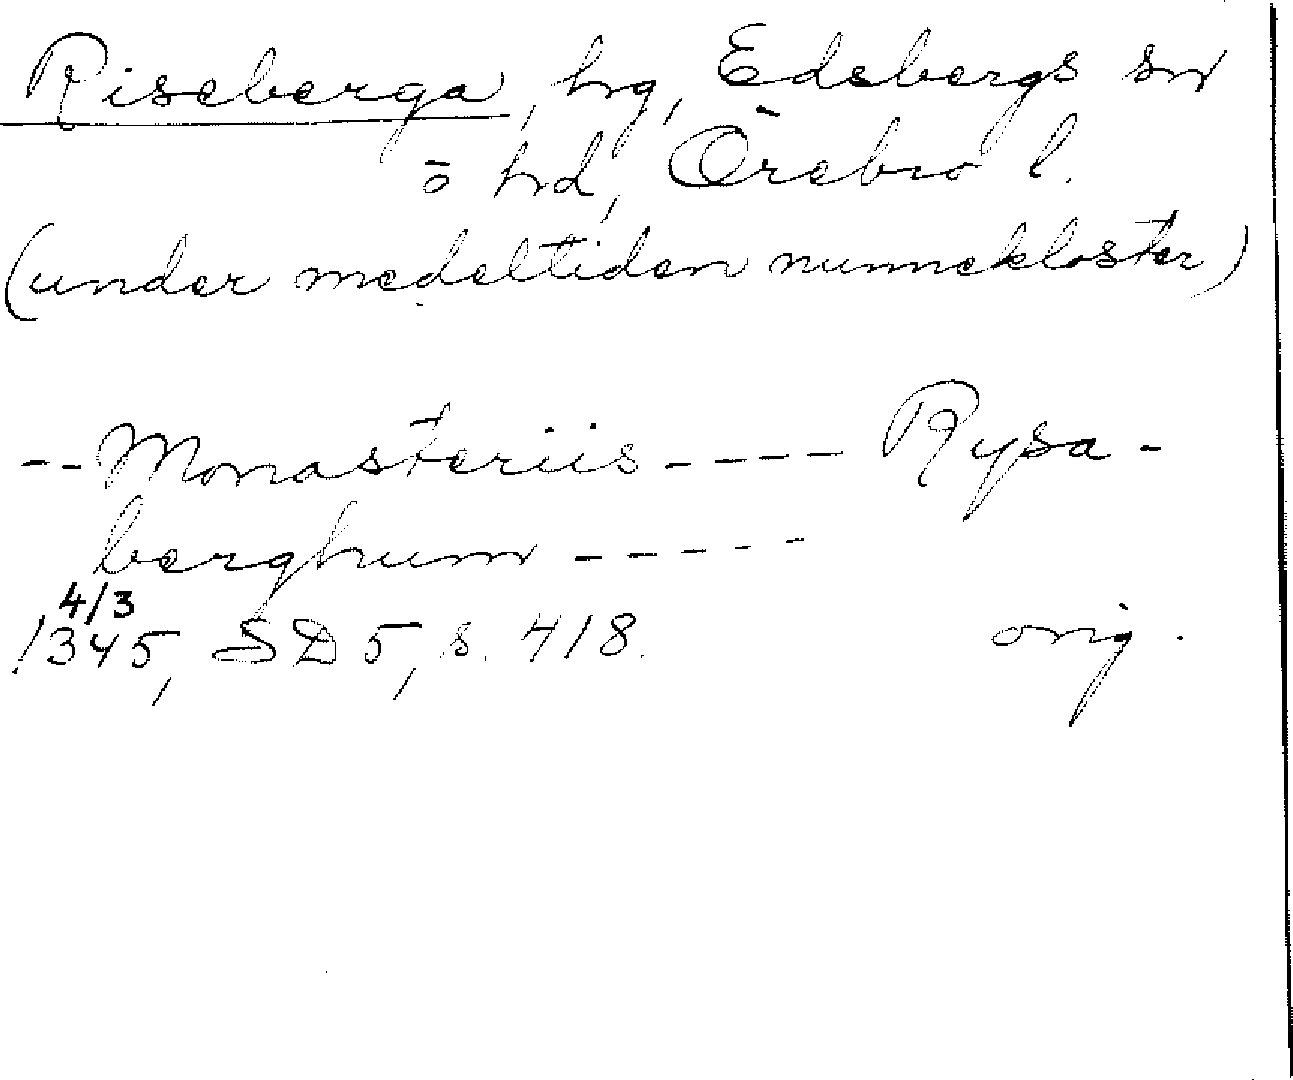 Riseberga, hg, Edsbergs sn
o hd, Örebro l.
(under medeltiden nunnekloster)
-- Monasteriis ---- Rysa-
berghum -----
4/3
1345, SD 5, s. 418. orig.